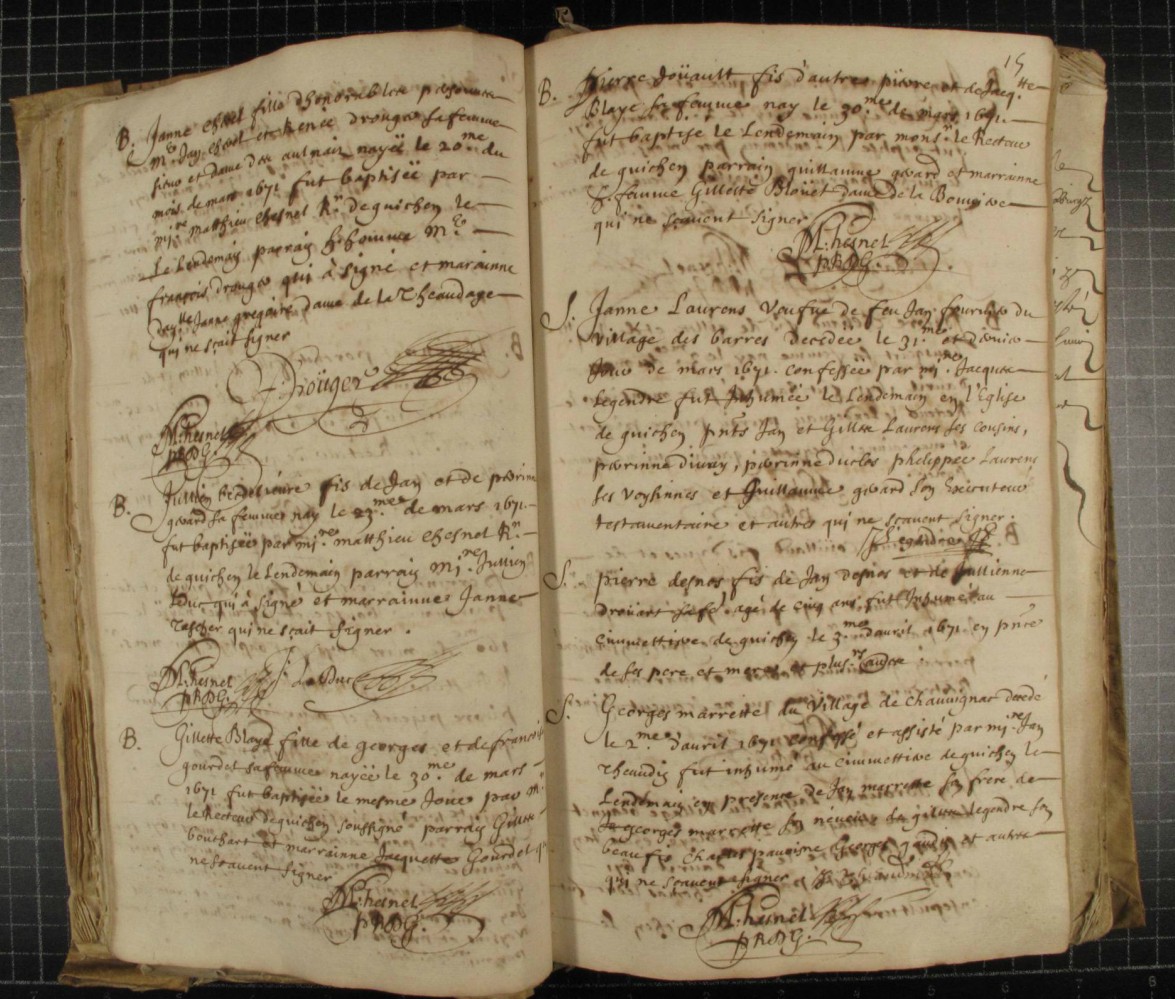 B. Janne fille d'honorables personnes
Mᵉ Jan et sa femme
sieur et dame des aulnais nayée le 20.ᵐᵉ du
mois de mars 1671 fut baptisée par
Mⁱʳᵉ Matthieu Chesnel Rʳ. de guichen le
le Lendemain parrain h. homme Mᵉ.
françois drouger qui à signé et marainne
daˡˡᵉ Janne gregoire dame de la Theaudage
qui ne sçait signer
F. Droüger
M. Chesnel
PRDG.
B. Jullien fis de Jan et de perrine
gward sa femme nay le 23.ᵐᵉ de mars 1671.
fut baptisée par miʳᵉ. matthieu Chesnel Rʳ.
de guichen le Lendemain parrain Miʳᵉ. Jullien
Leduc qui à signé et marrainne Janne
Tascher qui ne sçait signer.
M. Chesnel J. Le Duc
PRDG.
B. Gillette Blaye fille de georges et de françoise
gourdel sa femme nayée le 30.ᵐᵉ de mars
1671 fut baptisée le mesme Jour par Mʳ.
le Recteur de guichen soussigné parrain Gilles
bouchart et marrainne Jacquette Gourdel q
ne sçavent signer
M. Chesnel
PRDG.
15
B. Pierre doüault fis d'autre pierre et de Jacqᵗᵗᵉ
Blaye sa femme nay le 30.ᵐᵉ de mars 1671.
fut baptisé le Lendemain par monsʳ. le Recteur
de guichen parrain guillaume gward et marrainne
h. femme Gillette Bloüet dame de la
qui ne sçavent signer
M. Chesnel
PRDG.
S. Janne Laurens Veufve de feu Jan du
village des barres decedée le 31.ᵐᵉ et dernier
Jour de mars 1671. confessée par miʳᵉ. Jacques
Legendre fut Inhumée le Lendemain en l'Eglise
de guichen pnts Jan et Gilles Laurens ses cousins,
perrinne divay, perrinne duclos phelippee Laurens
ses voysinnes et Guillaume gward son Executeur
testamentaire et autres qui ne sçavent signer.
J. Legendre
S. pierre desnos fis de Jan desnos et de Jullienne
droüart sa fe. agé de cinq ans fut Inhumé au
cimmettiere de guichen le 3.ᵐᵉ d'avril 1671 en pnce
de ses pere et mere et plusʳˢ. autres
S. Georges marrette du village de Chauvignac decedé
le 2.ᵐᵉ d'avril 1671 confessé et assisté par miʳᵉ Jan
Theaudis fut inhumé au cimmettiere de guichen le
Lendemain en presence de Jan marrette son frere de
georges marrette son nepveu de gilles legendre son
beau fis Georges et autres
qui ne sçavent signer
M. Chesnel
PRDG.